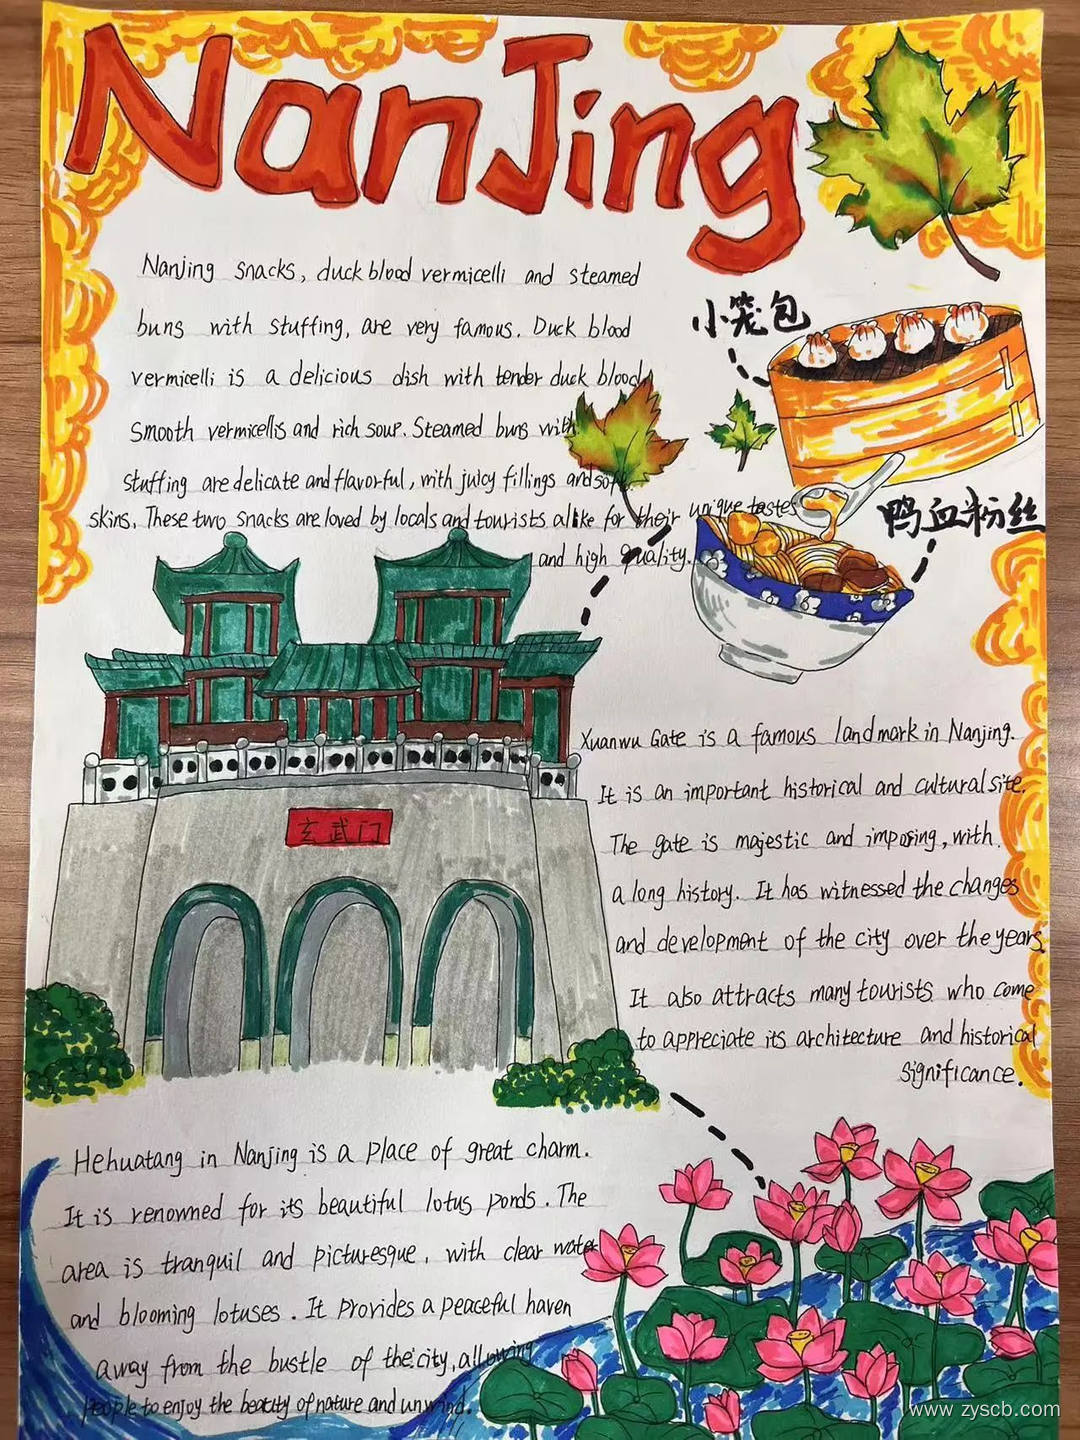 NanJing
Nanjing snacks, duck blood vermicelli and steamed
buns with stuffing, are very famous. Duck blood
vermicelli is a delicious dish with tender duck blood,
smooth vermicellis and rich soup. Steamed buns with
stuffing are delicate and flavorful, with juicy fillings and soft
skins. These two snacks are loved by locals and tourists alike for their unique tastes
and high quality.
小笼包
鸭血粉丝
玄武门
Xuanwu Gate is a famous landmark in Nanjing.
It is an important historical and cultural site.
The gate is majestic and imposing, with
a long history. It has witnessed the changes
and development of the city over the years.
It also attracts many tourists who come
to appreciate its architecture and historical
significance.
Hehuatang in Nanjing is a place of great charm.
It is renowned for its beautiful lotus ponds. The
area is tranquil and picturesque, with clear water
and blooming lotuses. It provides a peaceful haven
away from the bustle of the city, allowing
people to enjoy the beauty of nature and unwind.
www.zyscb.com